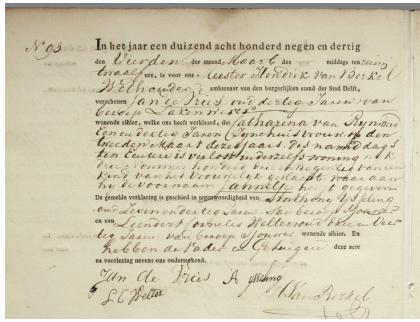 N 93
In het jaar een duizend acht honderd negen en dertig
den Vierden der maand Maart des middags ten
twaalf ure, is voor ons Meester Hendrik van Berkel
Wethouder ambtenaar van den burgerlijken stand der Stad Delft,
verschenen Jan de Vries oud dertig Jaren van
beroep Lakenwever
wonende alhier, welke ons heeft verklaard, dat Catharina van
Een en dertig Jaren Zijne huisvrouw op den
tweeden Maart dezes Jaars des namiddags
ten Een ure is verlost in derzelfs woning
drie Nommer honderd van een
kind van het Vrouwelijk geslacht, waar aan
hij de voornaam Jannetje heeft gegeven
De gemelde verklaring is geschied in tegenwoordigheid van Anthony Ysseling
oud Zeven en dertig Jaren van beroep
en van Leendert Cornelis Welter oud
tig Jaren van beroep wonende alhier. En
hebben de Vader en Getuigen deze acte
na voorlezing nevens ons onderteekend.
Jan de Vries A ysseling
L C Welter
HVanBerkel